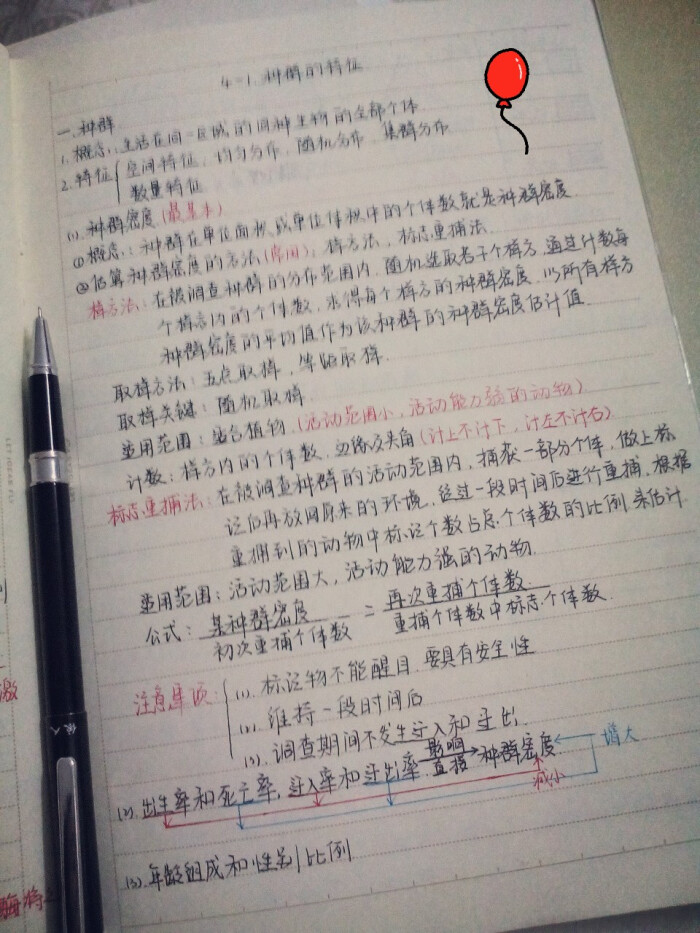 4-1.种群的特征
一.种群
1.概念:生活在同一区域的同种生物的全部个体
2.特征 空间特征:均匀分布.随机分布.集群分布
数量特征
(1).种群密度(最基本)
①概念:种群在单位面积或单位体积中的个体数就是种群密度
②估算种群密度的方法(常问):样方法,标志重捕法
样方法:在被调查种群的分布范围内.随机选取若干个样方.通过计数每
个样方内的个体数,求得每个样方的种群密度.以所有样方
种群密度的平均值作为该种群的种群密度估计值.
取样方法:五点取样,等距取样.
取样关键:随机取样
适用范围:适合植物.(活动范围小,活动能力弱的动物)
计数:样方内的个体数.边缘及夹角(计上不计下,计左不计右)
标志重捕法:在被调查种群的活动范围内,捕获一部分个体,做上标
记后再放回原来的环境.经过一段时间后进行重捕.根据
重捕到的动物中标记个数占总个体数的比例.来估计
适用范围:活动范围大,活动能力强的动物.
公式:某种群密度/初次重捕个体数=再次重捕个体数/重捕个体数中标志个体数.
注意事项:(1).标记物不能醒目.要具有安全性
(2).维持一段时间后
(3).调查期间不发生迁入和迁出.
(2).出生率和死亡率,迁入率和迁出率 影响 直接 种群密度 增大
减小
(3).年龄组成和性别比例